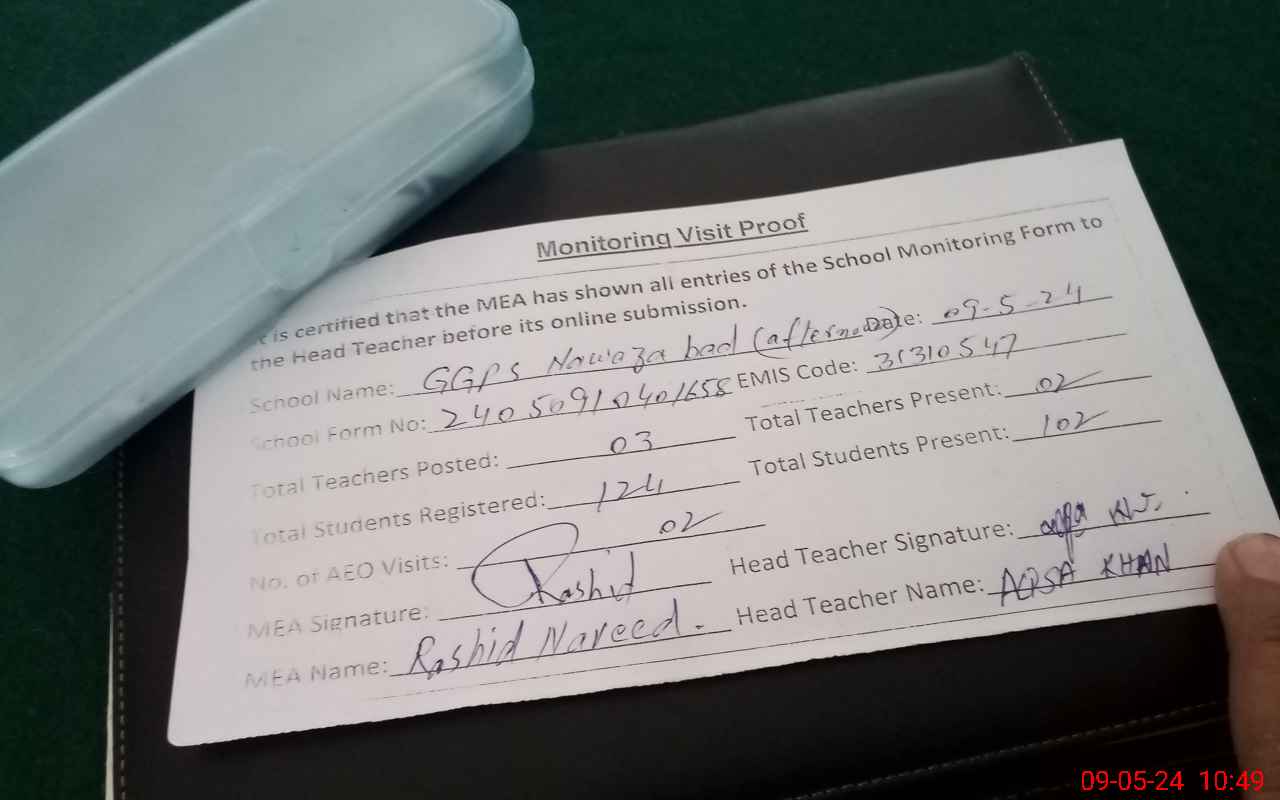 Monitoring Visit Proof
It is certified that the MEA has shown all entries of the School Monitoring Form to
the Head Teacher before its online submission.
School Name: GGPS Nawaza bad (afternoon) Date: 09-5-24
School Form No: 24050910401658 EMIS Code: 31310547
Total Teachers Posted: 03 Total Teachers Present: 02
Total Students Registered: 124 Total Students Present: 102
No. of AEO Visits: 02
MEA Signature: Rashid Head Teacher Signature:
MEA Name: Rashid Naveed. Head Teacher Name: AQSA KHAN
09-05-24 10:49